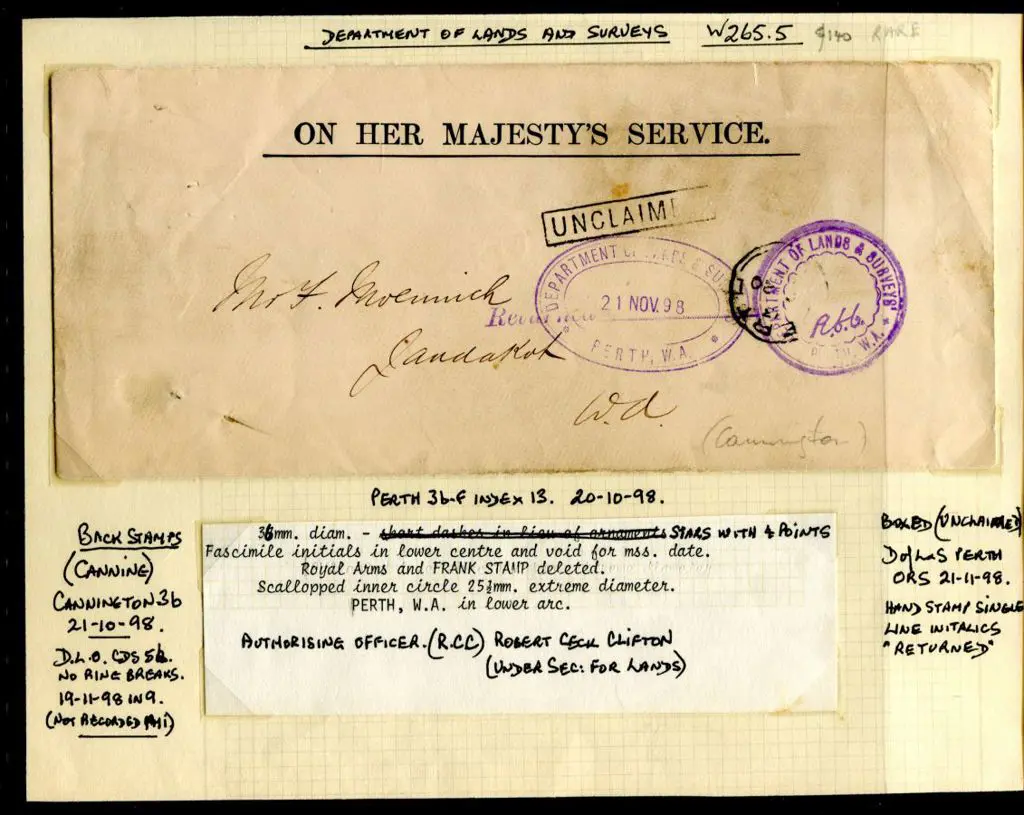 DEPARTMENT OF LANDS AND SURVEYS W265.5 $140 RARE
ON HER MAJESTY'S SERVICE.
UNCLAIM
DEPARTMENT OF LANDS & SU
21 NOV. 98
PERTH, W.A.
DEPARTMENT OF LANDS & SURVEYS
W.A.
Mr F.
Jandakot
W.A.
(Cannington)
PERTH 3b-F INDEX 13. 20-10-98.
BACK STAMPS
(CANNINE)
CANNINGTON 3b
21-10-98.
D.L.O. CDS 5b.
NO RING BREAKS.
19-11-98 IN 9.
(NOT RECORDED
36mm. diam. - short dashes in lieu of ornaments STARS WITH 4 POINTS
Fascimile initials in lower centre and void for mss. date.
Royal Arms and FRANK STAMP deleted.
Scallopped inner circle 25½mm. extreme diameter.
PERTH, W.A. in lower arc.
AUTHORISING OFFICER. (R.C.C) ROBERT CECIL CLIFTON
(UNDER SEC: FOR LANDS)
BOXED (UNCLAIMED)
D of L & S PERTH
ORS 21-11-98.
HAND STAMP SINGLE
LINE IN ITALICS
"RETURNED"